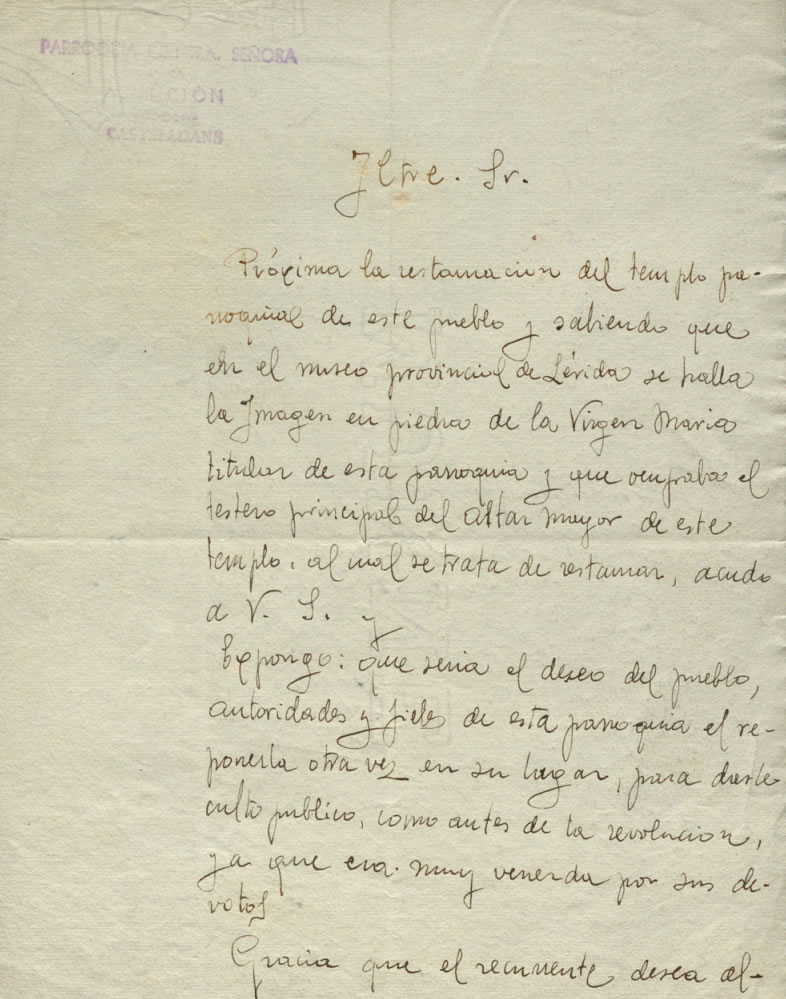 PARROQUIA NTRA. SEÑORA
ASUNCIÓN
CASTELLDANS
Iltre. Sr.
Próxima la restauración del templo pa-
rroquial de este pueblo y sabiendo que
en el museo provincial de Lérida se halla
la Imagen en piedra de la Virgen Maria
titular de esta parroquia y que ocupaba el
testero principal del altar mayor de este
templo, al cual se trata de restaurar, acudo
a V. S. y
Expongo: que seria el deseo del pueblo,
autoridades y fieles de esta parroquia el re-
ponerla otra vez en su lugar, para darle
culto publico, como antes de la revolucion,
ya que era muy venerda por sus de-
votos
Gracia que el recurrente desea al-